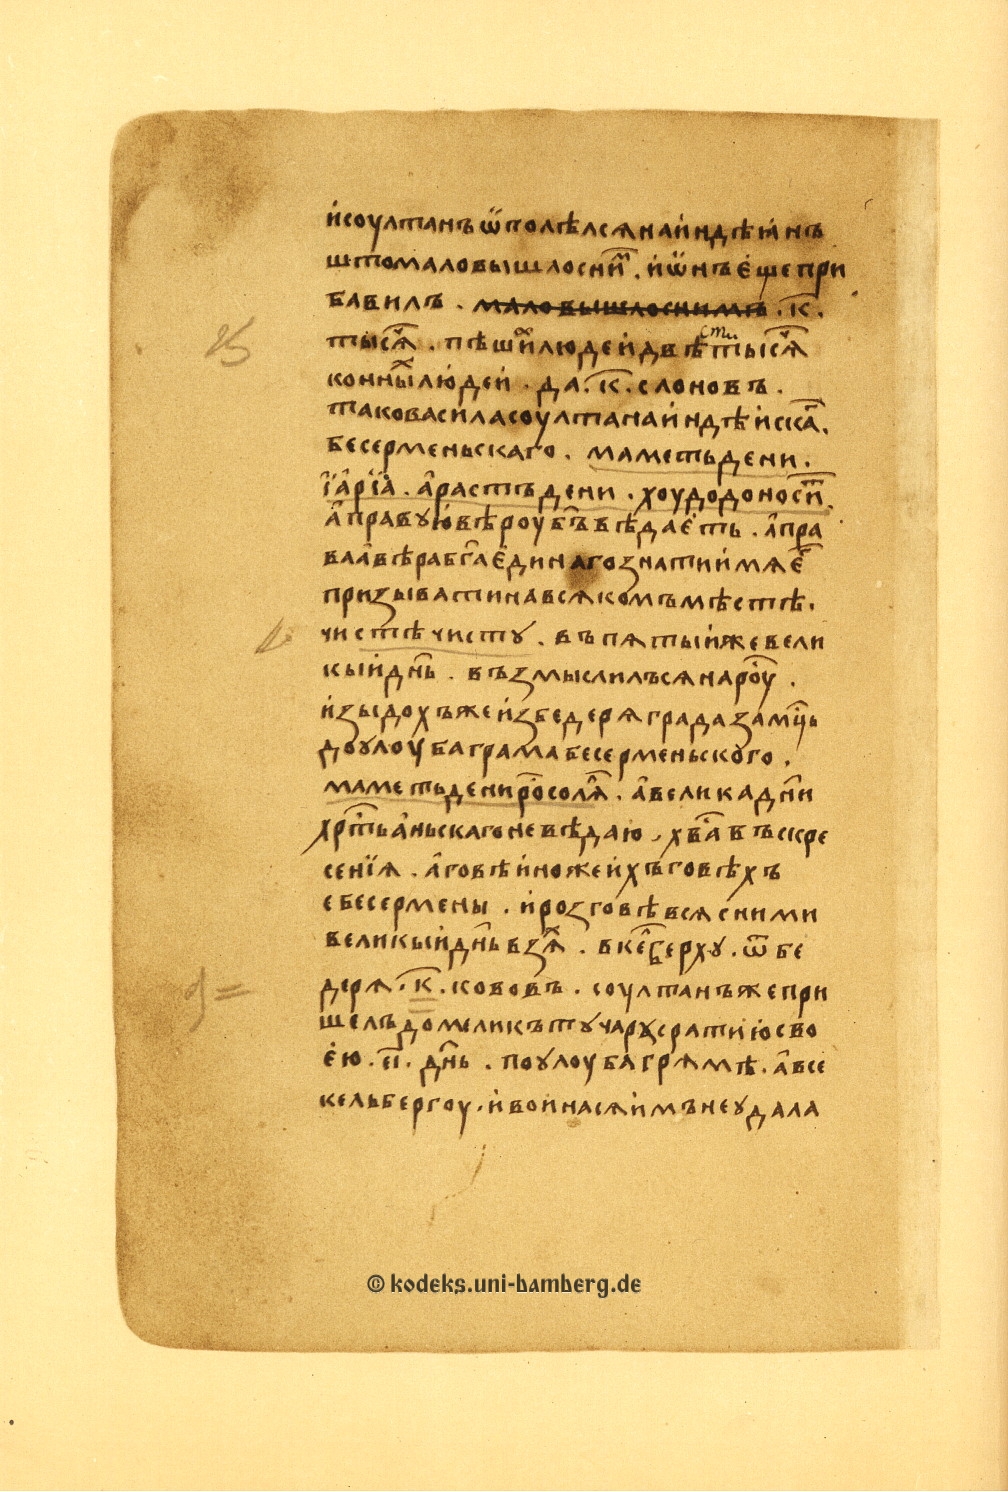 исоултанъѿполѣлсянаиндѣꙗнъ
штомаловышлосни҃м . иѡ҃нъещепри
бавилъ . маловышлоснимъ . к҃ .
тыся҃ч . пѣшихлюдеидвѣститыся҃ч
конныхлюдеи . да . к҃ . слоновъ .
таковасиласоултанаиндѣиска҃г .
бесерменьскаго . маметьдени .
їарїа . арастъдени . хоудодоноси҃т .
аправуювѣроуб҃ъвѣдаеть . апра
ваавѣраб҃гаединагознатииимяе҃г
призыватинавсякомъмѣстѣ .
чистѣчисту . въпятыижевели
кыид҃нь . възмыслилъсянароусь .
изыдохъжеизбедеряградазам҃ць
доулоубаграмабесерменьского .
маметьдениросоля҃л . авеликад҃ни
хр҃тьаньскагоневѣдаю . х҃ваъскре
сенїя . аговѣиножеихъговѣхъ
ебесермены . ирозговѣвсясними
великыид҃ньвзях . вкельберху . ѿбе
деря . к҃ . кововъ . соултанъжепри
шелъдомеликътучарусратиюсво
ею . е҃і . д҃нь . поулоубагрямѣ . авсе
кельбергоу . ивоинасяимънеудала
© kodeks.uni-bamberg.de